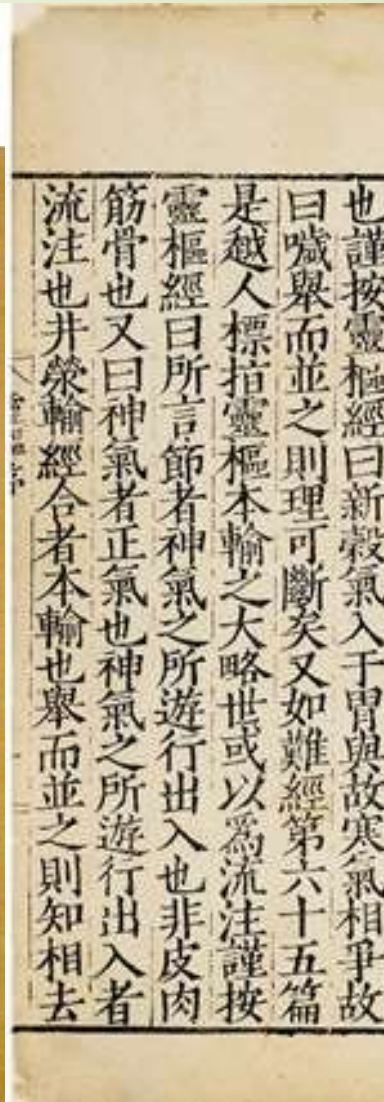 也謹按靈樞經曰新穀氣入于胃與故寒氣相爭故
曰噦舉而並之則理可斷矣又如難經第六十五篇
是越人標指靈樞本輸之大略世或以爲流注謹按
靈樞經曰所言節者神氣之所遊行出入也非皮肉
筋骨也又曰神氣者正氣也神氣之所遊行出入者
流注也井滎輸經合者本輸也舉而並之則知相去